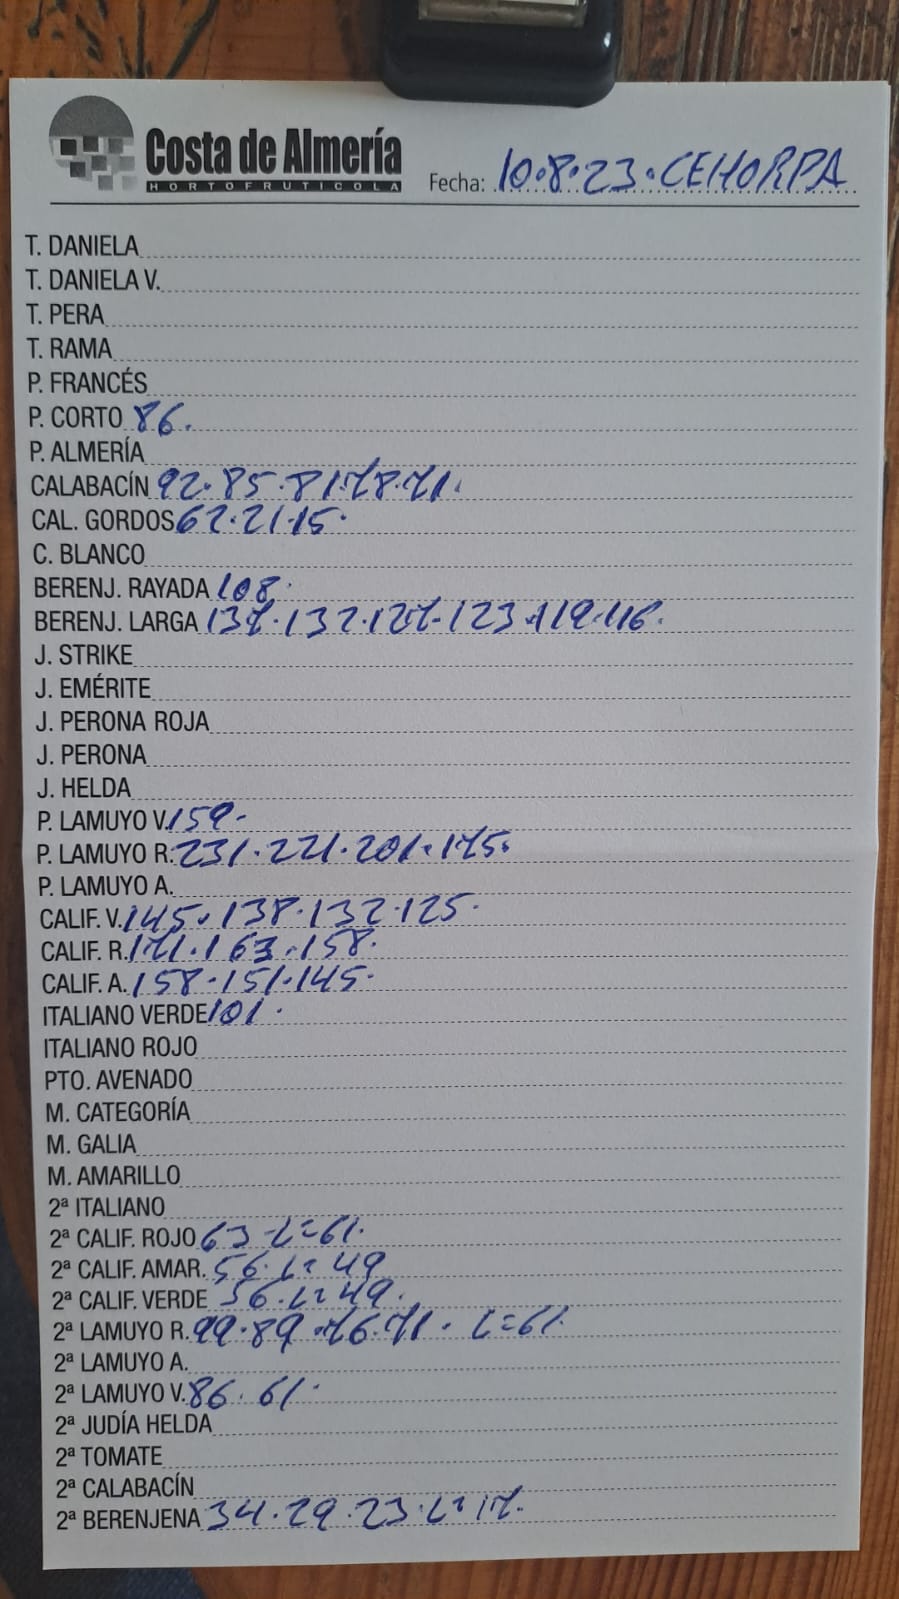 Costa de Almería
HORTOFRUTICOLA
Fecha: 10.8.23.CEHORPA
T. DANIELA
T. DANIELA V.
T. PERA
T. RAMA
P. FRANCÉS
P. CORTO 86.
P. ALMERÍA
CALABACÍN 92.85.81.78.71.
CAL. GORDOS 62.21.15.
C. BLANCO
BERENJ. RAYADA 108.
BERENJ. LARGA 137.132.127.123.119.116.
J. STRIKE
J. EMÉRITE
J. PERONA ROJA
J. PERONA
J. HELDA
P. LAMUYO V. 159.
P. LAMUYO R. 231.221.201.175.
P. LAMUYO A.
CALIF. V. 145.138.132.125.
CALIF. R. 171.163.158.
CALIF. A. 158.151.145.
ITALIANO VERDE 101.
ITALIANO ROJO
PTO. AVENADO
M. CATEGORÍA
M. GALIA
M. AMARILLO
2ª ITALIANO
2ª CALIF. ROJO 63-L=61.
2ª CALIF. AMAR. 56.L=49
2ª CALIF. VERDE 56.L=49.
2ª LAMUYO R. 99.89.76.71.L=61.
2ª LAMUYO A.
2ª LAMUYO V. 86.61.
2ª JUDÍA HELDA
2ª TOMATE
2ª CALABACÍN
2ª BERENJENA 34.29.23.L=17.